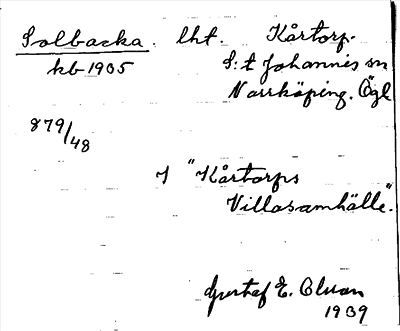 Solbacka. lht. Kårtorp.
kb 1905 S:t Johannis sn
Norrköping. Ögl
879/48
I "Kårtorps
Villasamhälle".
Gustaf E. Olsson
1939